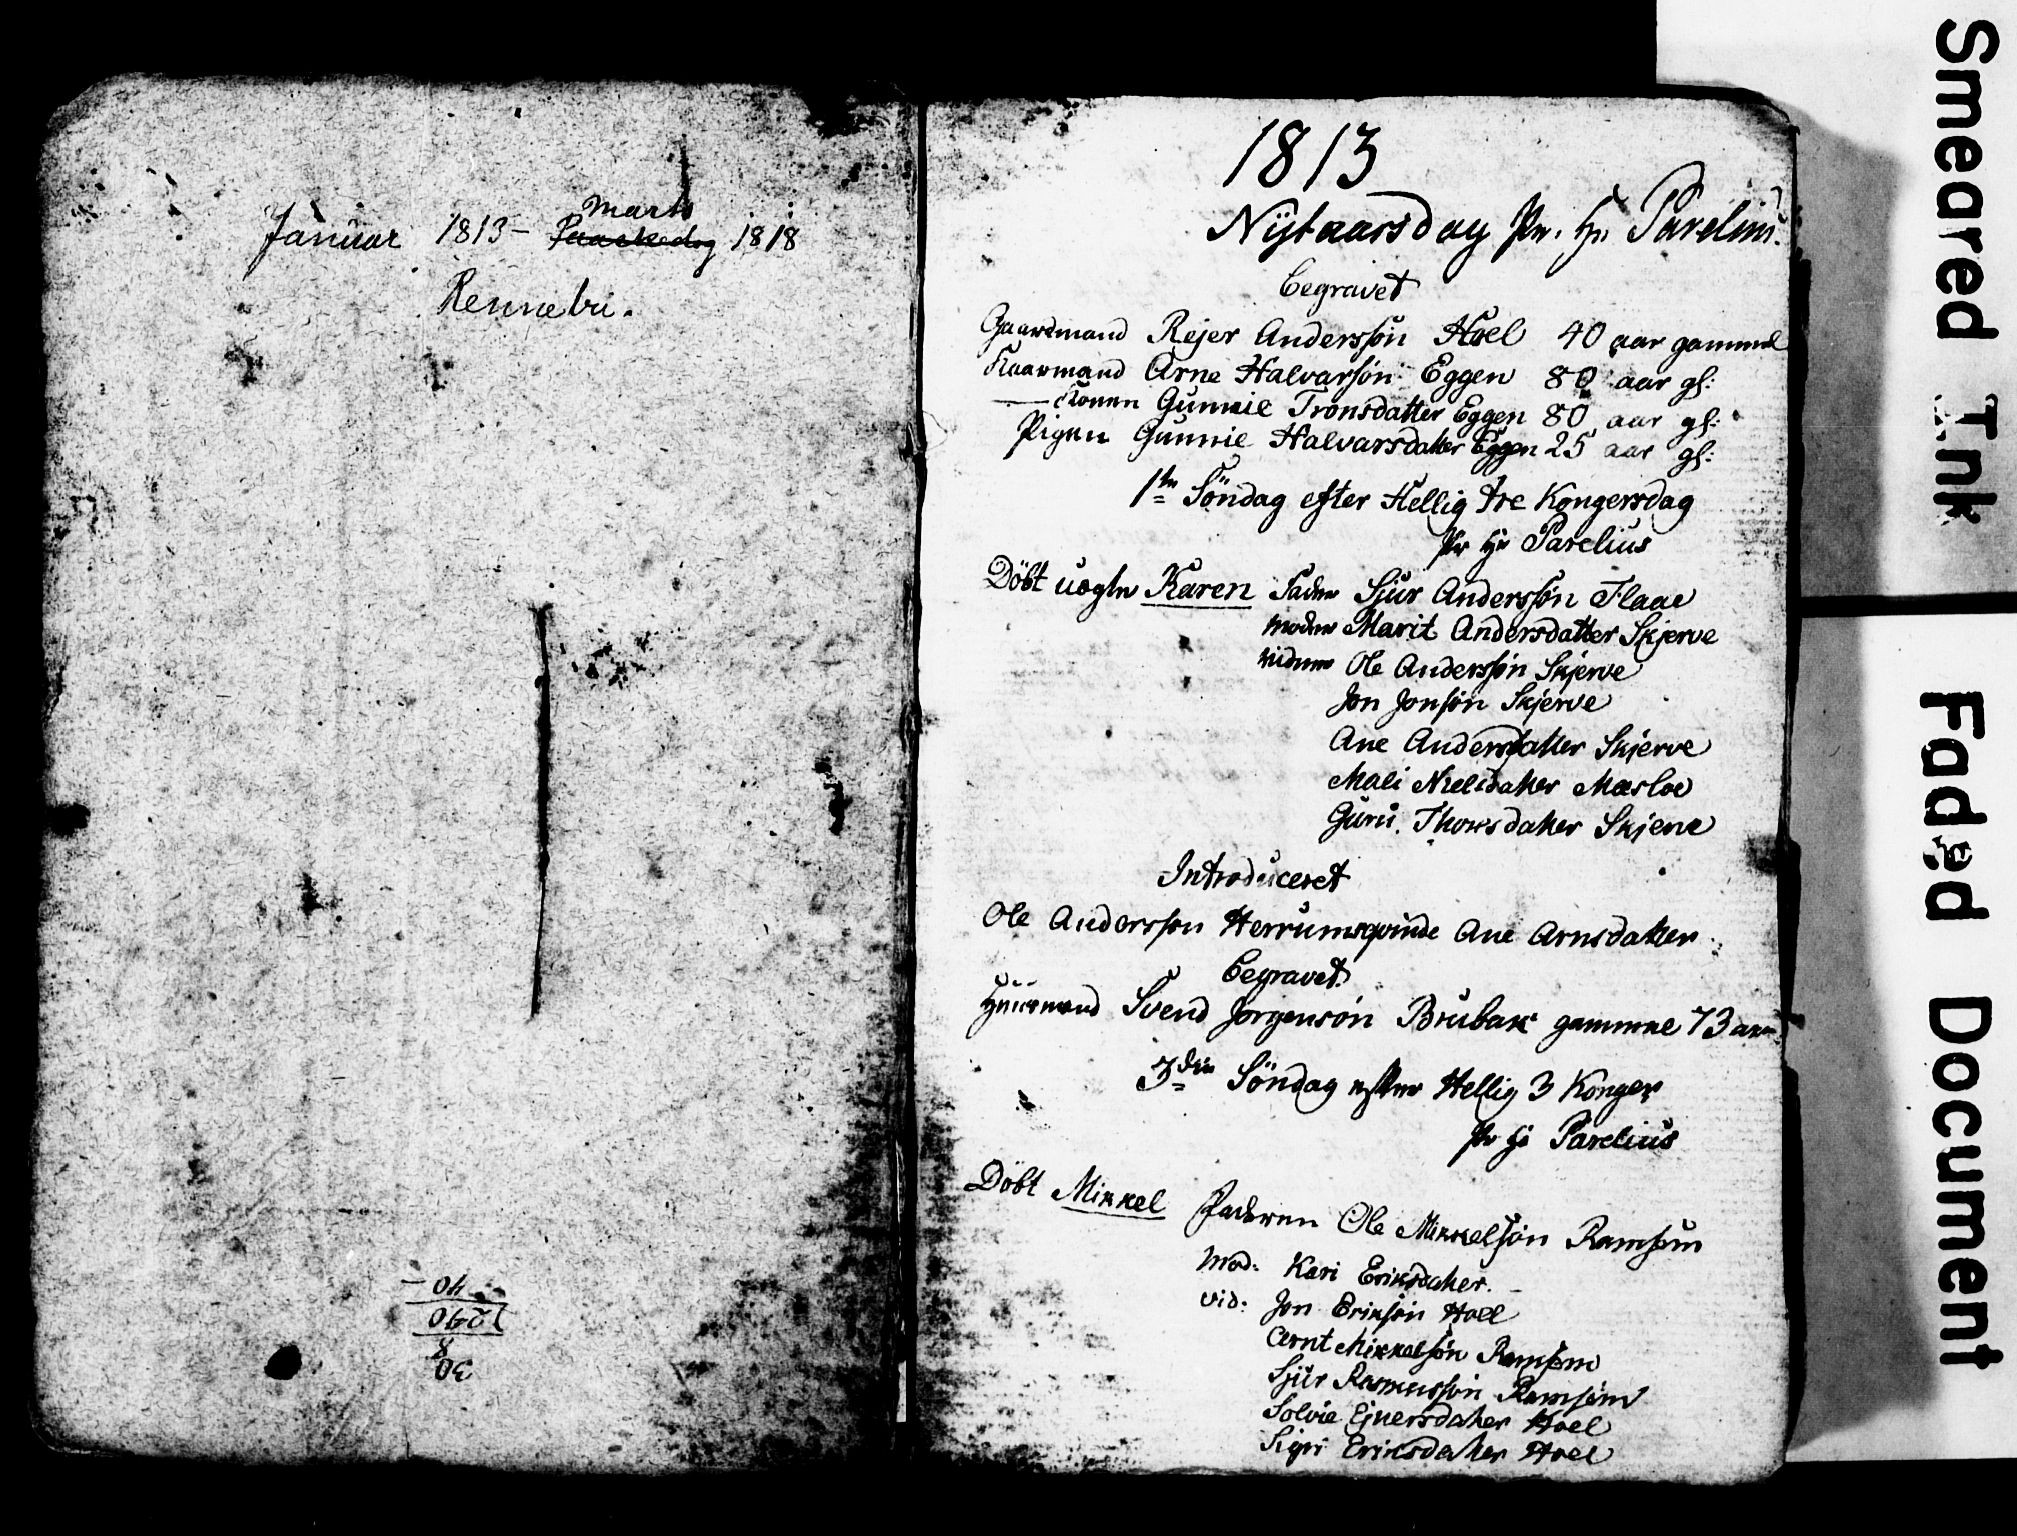 Januar 1813 – Paaskedag 1818
Marts
Rennebu.
40 –
1240
8
30
1813
Nÿtaarsdag Pr. Hr. Parelius.
Begravet
Gaardmand Rejer Anderssøn Hoel 40 aar gammel
Kaarmand Arne Halvarsøn Eggen 80 aar gl:
— Konen Gunnil Tronsdatter Eggen 80 aar gl:
Pigen Gunnil Halvarsdatter Eggen 25 aar gl:
1ste Søndag efter Hellig tre Kongersdag
Pr Hr Parelius
Døbt uægte Karen Fader Sjur Anderssøn Flaae
Moder Marit Andersdatter Skjerve
vidner Ole Anderssøn Skjerve
Jon Jonsøn Skjerve
Ane Andersdatter Skjerve
Mali Nielsdatter Mæsloe
Guru Thorsdatter Skjerve
Introduceret
Ole Anderssøn Herrumsqvinde Ane Arnsdatter
Begravet
Huusmand Svend Jørgensøn Brubak gammel 73 aar
3die Søndag efter Hellig 3 Konger
Pr Hr Parelius
Døbt Mikkel Faderen Ole Mikkelsøn Ramsem
Mod: Kari Eriksdatter.
vid: Jon Eriksøn Hoel
Arnt Mikkelsøn Ramsem
Sjur Rasmussøn Ramsem
Solvie Ejnersdatter Hoel
Sigri Eriksdatter Hoel
Smeared Ink
Faded Document